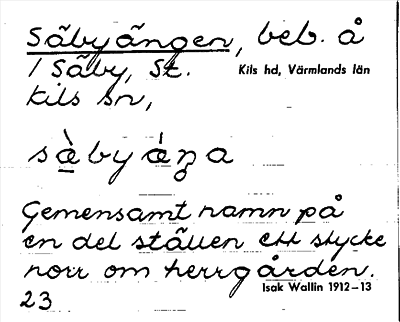 Säbyängen, beb. å
1 Säby, St.
Kils hd, Värmlands län
Kils sn,
sæ̀byǽŋa
Gemensamt namn på
en del ställen ett stycke
norr om herrgården.
Isak Wallin 1912-13
23